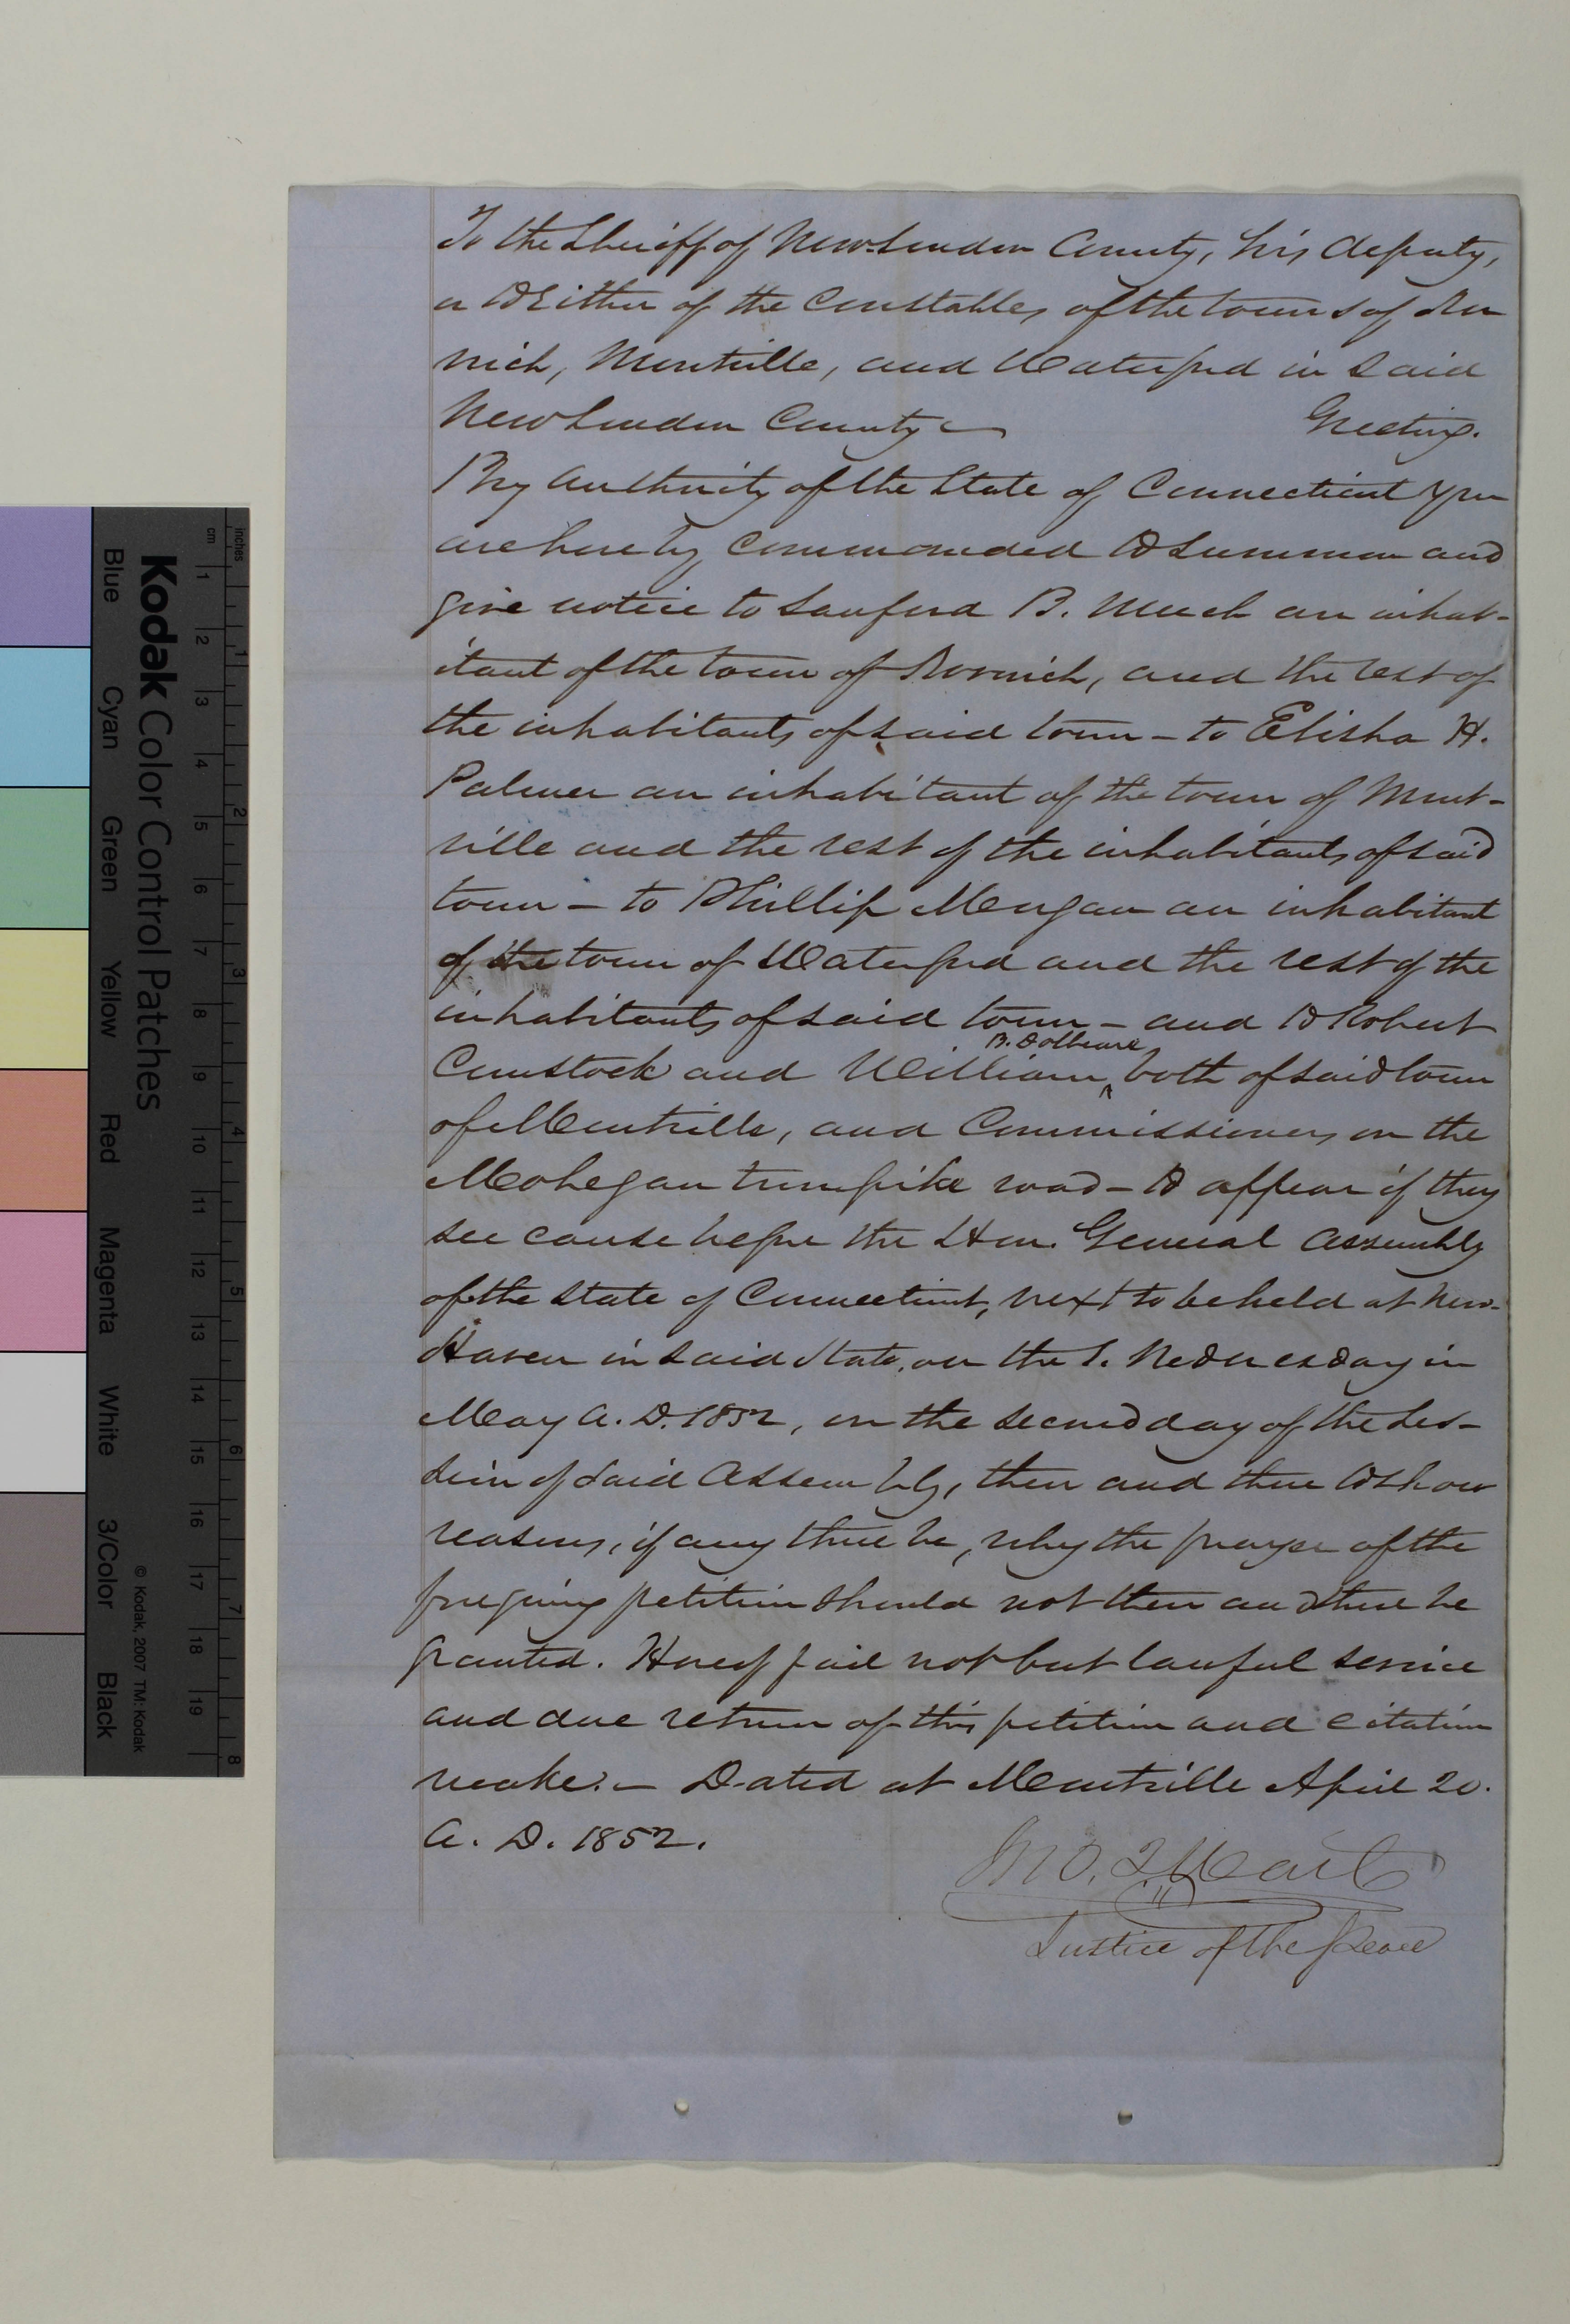 To the Sheriff of New London County, his deputy,
or to Either of the Constables of the towns of Nor
wich, Montville, and Waterford in said
New London County — Greeting.
By authority of the State of Connecticut you
are hereby commanded to summon and
give notice to Sanford B. Meech an inhab-
itant of the town of Norwich, and the rest of
the inhabitants of said town — to Elisha H.
Palmer an inhabitant of the town of Mont-
ville and the rest of the inhabitants of said
town — to Phillip Morgan an inhabitant
of the town of Waterford and the rest of the
inhabitants of said town — and to Robert
B. Dolbeare
Comstock and William ^ both of said town
of Montville, and Commissioners on the
Mohegan turnpike road — to appear if they
see cause before the Hon. General Assembly
of the State of Connecticut, next to be held at New-
Haven in said State, on the 1. Wednesday in
May A. D. 1852, on the second day of the Ses-
sion of said Assembly, then and there to show
reasons, if any there be, why the prayer of the
foregoing petition should not then and there be
granted. Hereof fail not but lawful service
and due return of this petition and citation
make. — Dated at Montville April 20.
A. D. 1852.
Justice of the Peace
Kodak Color Control Patches
Blue Cyan Green Yellow Red Magenta White 3/Color Black
© Kodak, 2007 TM: Kodak
inches 1 2 3 4 5 6 7 8
cm 1 2 3 4 5 6 7 8 9 10 11 12 13 14 15 16 17 18 19